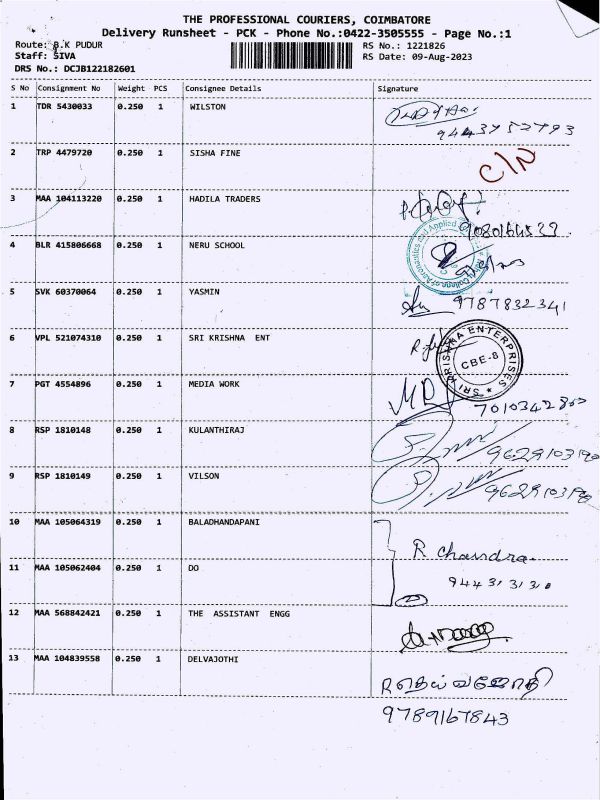 THE PROFESSIONAL COURIERS, COIMBATORE
Delivery Runsheet - PCK - Phone No.:0422-3505555 - Page No.:1
Route: B.K PUDUR RS No.: 1221826
Staff: SIVA RS Date: 09-Aug-2023
DRS No.: DCJB122182601
S No Consignment No Weight PCS Consignee Details Signature
1 TDR 5430033 0.250 1 WILSTON
9443752793
2 TRP 4479720 0.250 1 SISHA FINE C/N
3 MAA 104113220 0.250 1 HADILA TRADERS
4 BLR 415806668 0.250 1 NERU SCHOOL
5 SVK 60370064 0.250 1 YASMIN 9787832341
6 VPL 521074310 0.250 1 SRI KRISHNA ENT
SRI KRISHNA ENTERPRISES
CBE-8
7 PGT 4554896 0.250 1 MEDIA WORK
8 RSP 1810148 0.250 1 KULANTHIRAJ
9 RSP 1810149 0.250 1 VILSON
10 MAA 105064319 0.250 1 BALADHANDAPANI
R Chandra
11 MAA 105062404 0.250 1 DO
12 MAA 568842421 0.250 1 THE ASSISTANT ENGG
13 MAA 104839558 0.250 1 DELVAJOTHI
R தெய்வஜோதி
9789167843